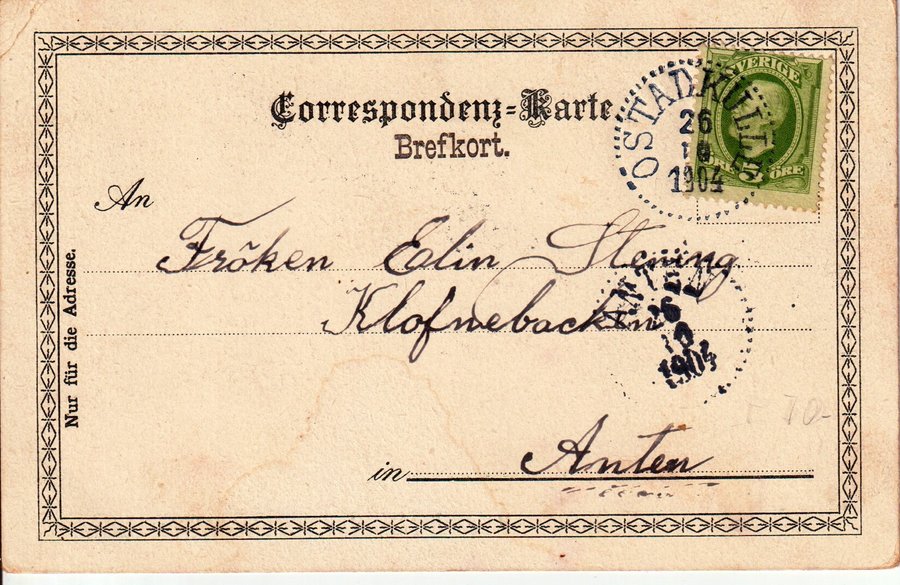 Correspondenz-Karte.
Brefkort.
SVERIGE
5 ÖRE
OSTADKULLE
26
10
1904
An
Fröken Edlin Stening
Klofnebacken
ANTEN
26
10
1904
Nur für die Adresse.
in Anten
70-